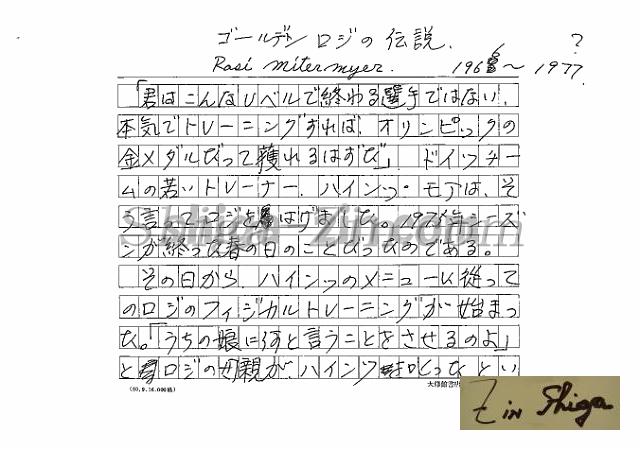 ゴールデン ロジの伝説. ?
Rosi mitermyer. 196~1977.
「君はこんなレベルで終わる選手ではない.
本気でトレーニングすれば, オリンピックの
金メダルだって獲れるはずだ」 ドイツチー
ムの若いトレーナー, ハインツ・モアは, そ
う言ってロジをはげました。197年シーズ
ンが終った春の日のことだったのである。
その日から, ハインツのメニューに従って
のロジのフィジカルトレーニングが始まっ
た。「うちの娘に何と言うことをさせるのよ」
とロジの母親が, ハインツを叱ったとい
(60.9.16,000冊)
大修館書店
Shiga-Zin.com
Zin Shiga